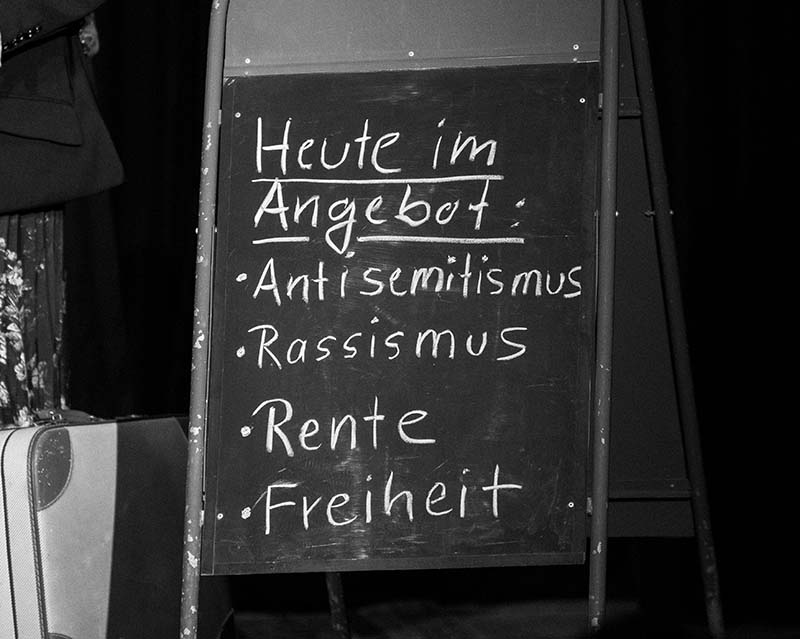 Heute im
Angebot:
• Antisemitismus
• Rassismus
• Rente
• Freiheit